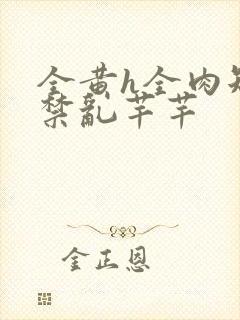 全黄h全肉短
禁乱芊芊
金正恩